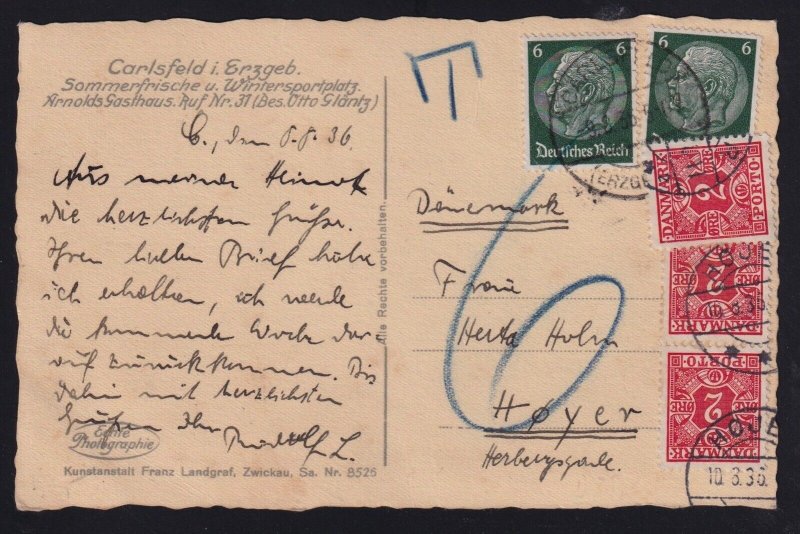 Carlsfeld i. Erzgeb.
Sommerfrische u. Wintersportplatz.
Arnolds Gasthaus. Ruf Nr. 37 (Bes. Otto Gläntz)
C., den 8.8.36
Aus meiner Heimat
die herzlichsten Grüße.
Ihren lieben Brief habe
ich erhalten, ich werde
die kommende Woche dar-
auf zurückkommen. Bis
dahin mit herzlichsten
Grüßen Ihr Rudolf L.
Echte
Photographie
Kunstanstalt Franz Landgraf, Zwickau, Sa. Nr. 8526
Alle Rechte vorbehalten.
T
6
6 6
Deutsches Reich
6
(ERZGE
Dänemark
Frau
Herta Holm
Høyer
Herbergsgade.
DANMARK
2
ØRE
PORTO
2
ØRE
DANMARK
10.8.36
PORTO
2
ØRE
DANMARK
HOJER
10.8.36